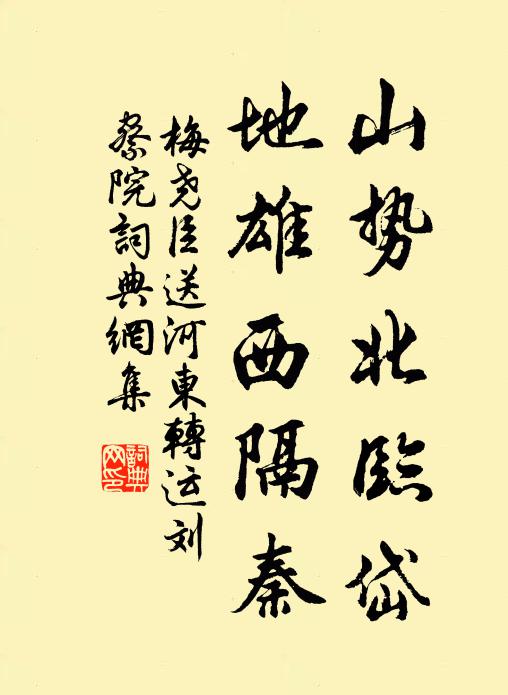 山势北臨岱
地雄西隔秦
梅尧臣送河東轉运刘
察院詞典網集
詞典网印